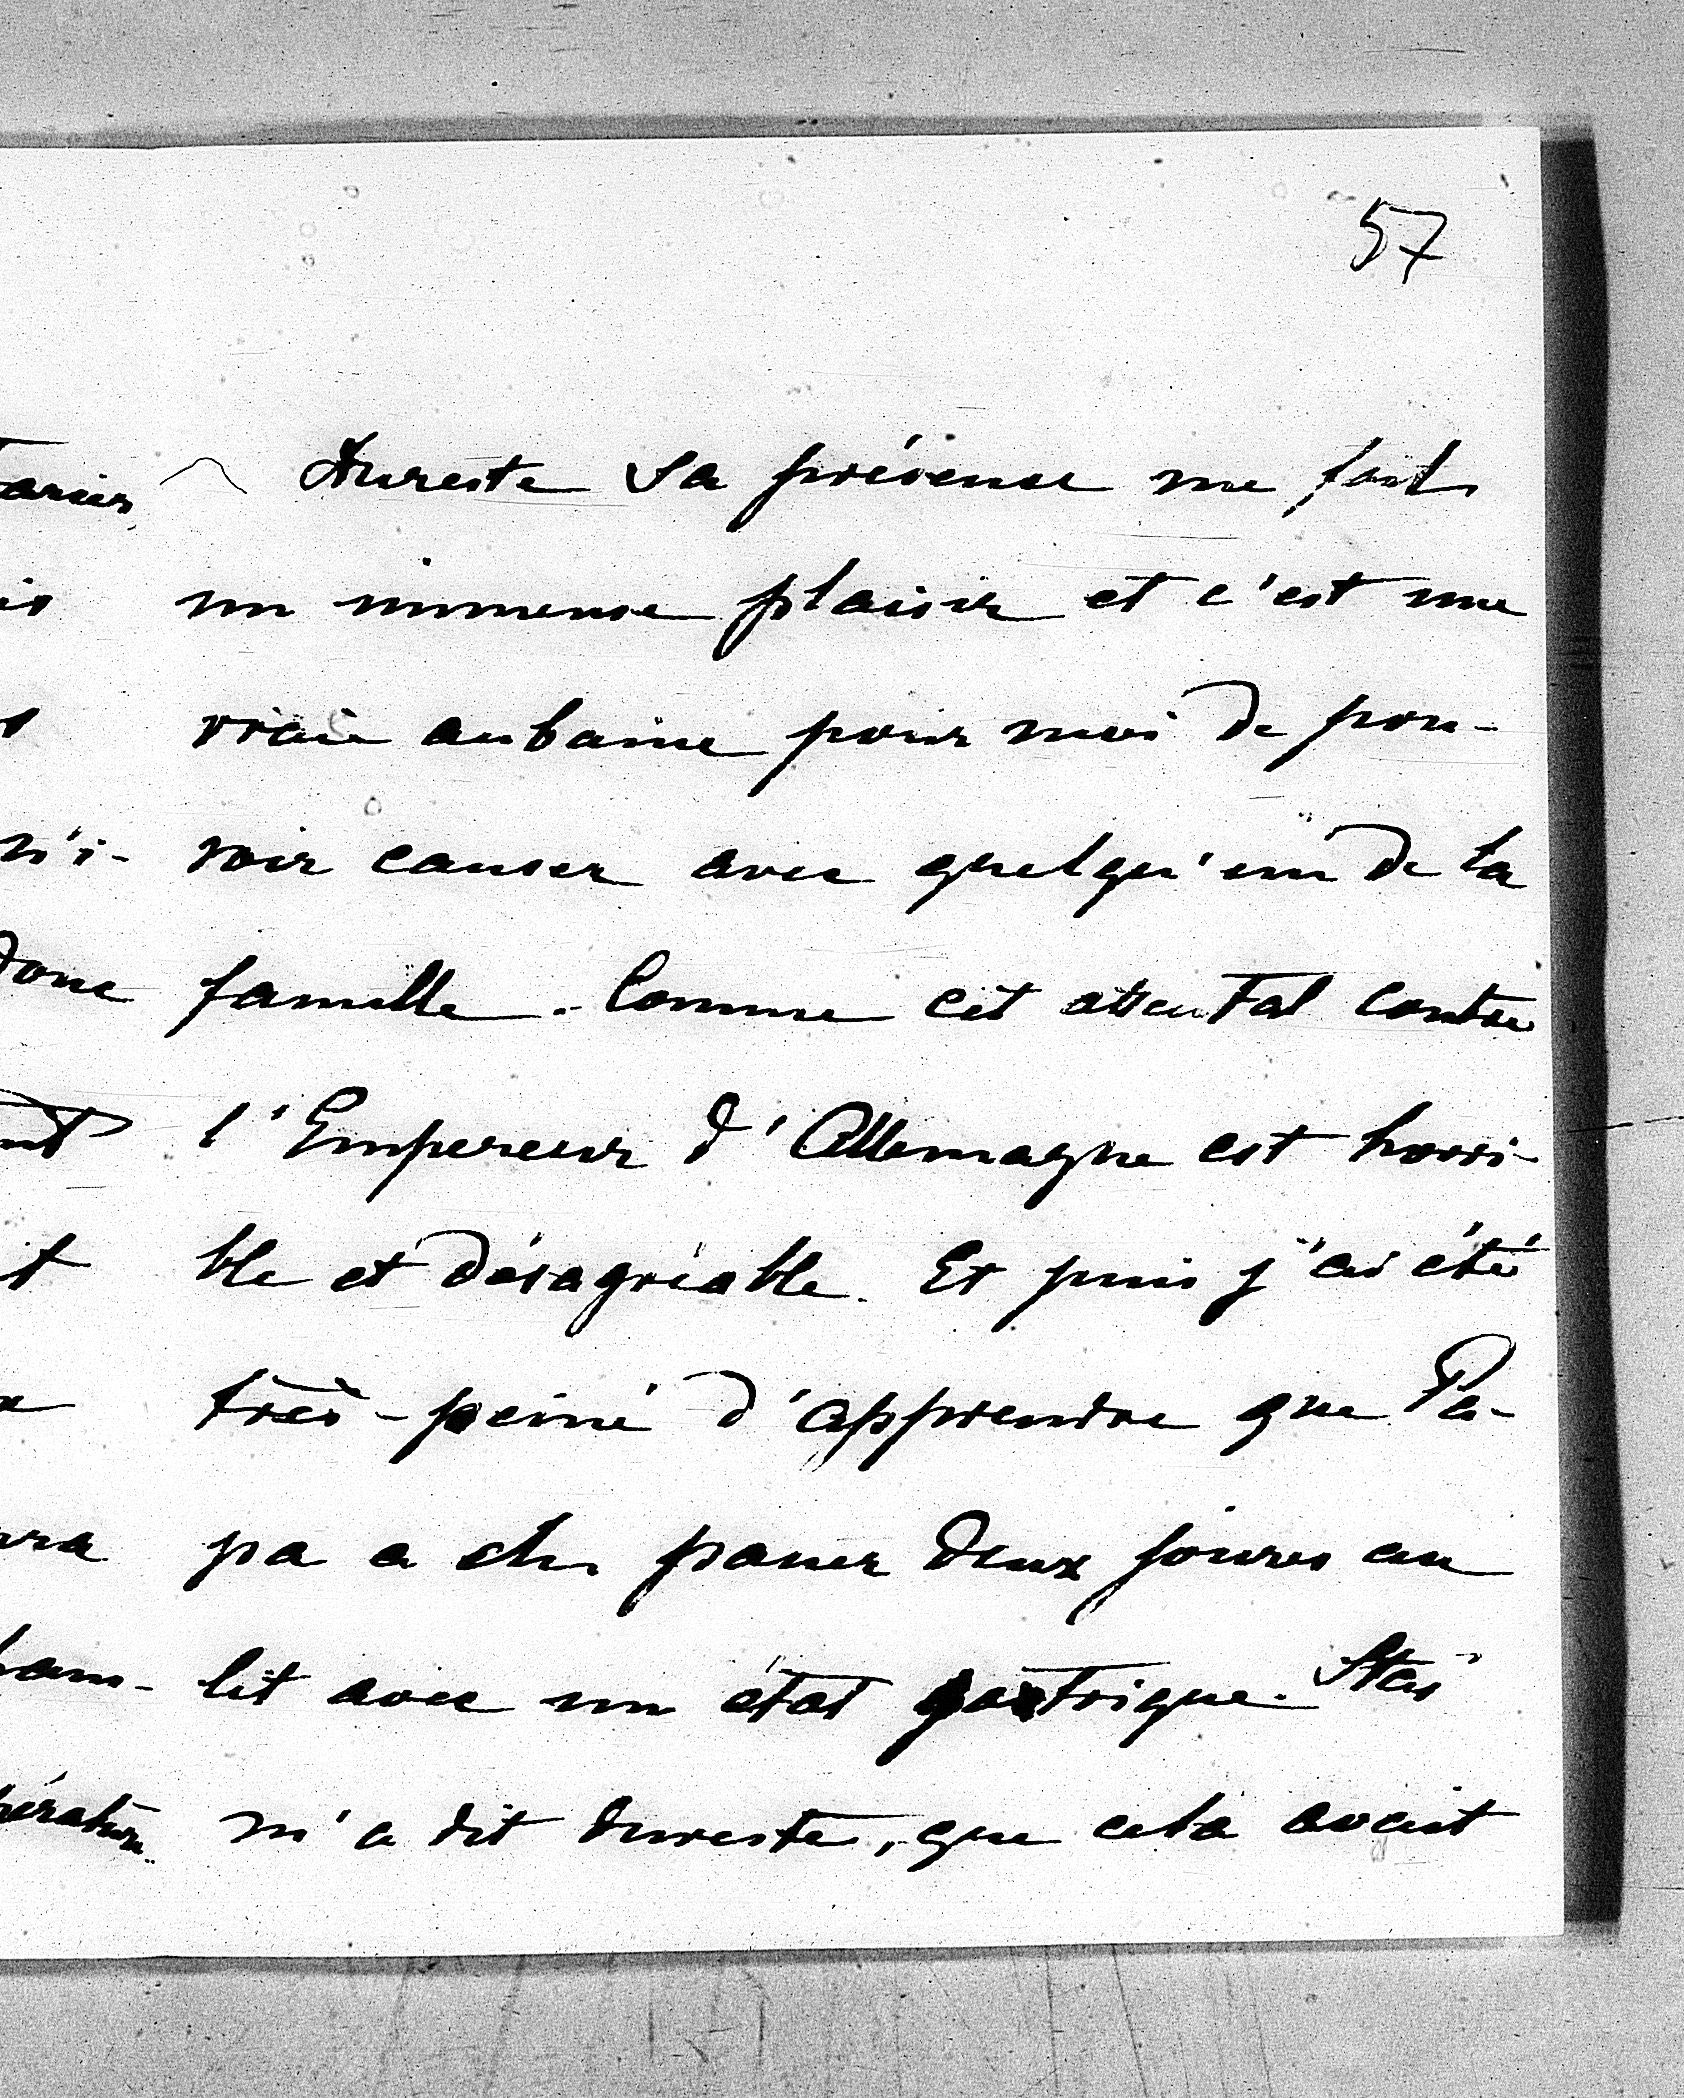 57
Dureste sa présence me fait
un immense plaisir et c'est une
vraie aubaine pour moi de pou-
voir causer avec quelqu'un de la
famille. Comme cet attentat contre
l'Empereur d'Allemagne est horri-
ble et désagréable. Et puis j'ai été
très-peiné d'apprendre que Pa-
pa a dû passer deux jours au
lit avec un état gastrique.
m'a dit dureste, que cela avait
donc
pérature